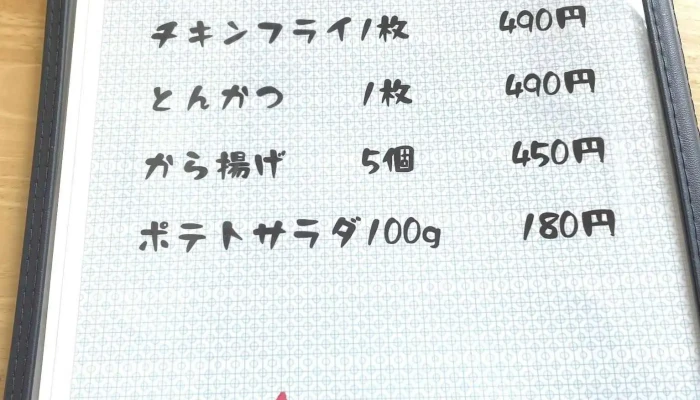 チキンフライ1枚 490円
とんかつ 1枚 490円
から揚げ 5個 450円
ポテトサラダ100g 180円